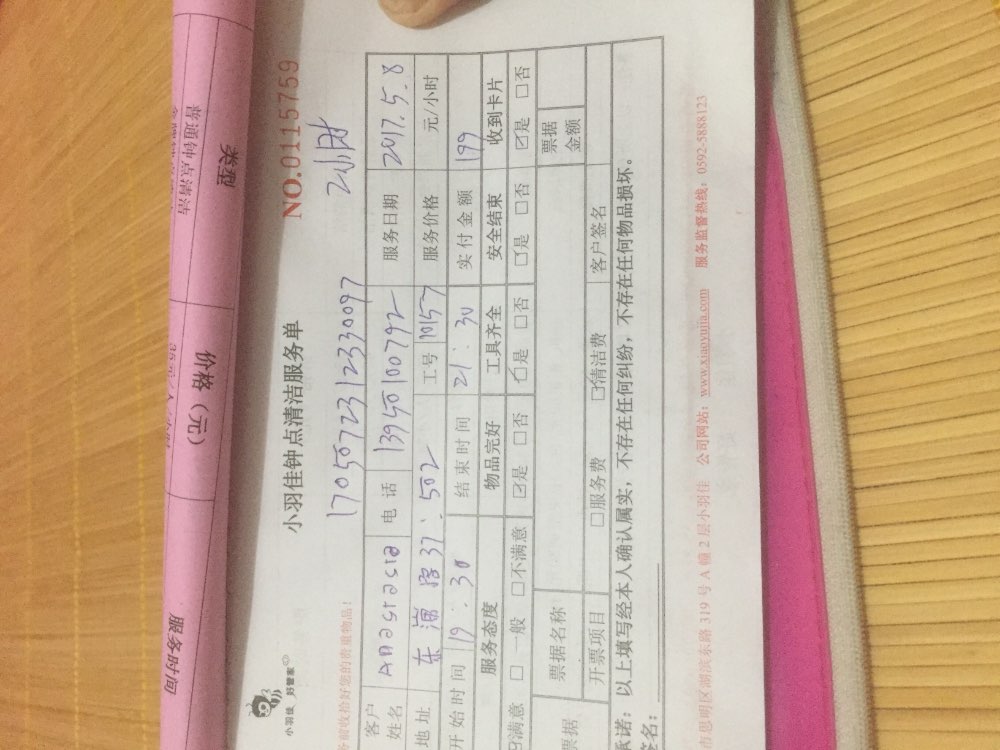 类型
价格（元）
服务时间
普通钟点清洁
小羽佳 好管家
小羽佳钟点清洁服务单
NO.0115759
务前收拾好您的贵重物品!
17050723123330097
客户姓名 Anastasia 电话 13950100792 服务日期 2017.5.8
地址 东 37:502 工号 10157 服务价格 元/小时
开始时间 19:30 结束时间 21:30 实付金额 199
服务态度 物品完好 工具齐全 安全结束 收到卡片
☑满意 □一般 □不满意 ☑是 □否 ☑是 □否 ☑是 □否 ☑是 □否
票据 票据名称 票据金额
开票项目 □服务费 □清洁费 客户签名
承诺：以上填写经本人确认属实，不存在任何纠纷，不存在任何物品损坏。
签名：
市思明区湖滨东路 319 号 A 幢 2 层小羽佳 公司网站：www.xiaoyujia.com 服务监督热线：0592-5888123